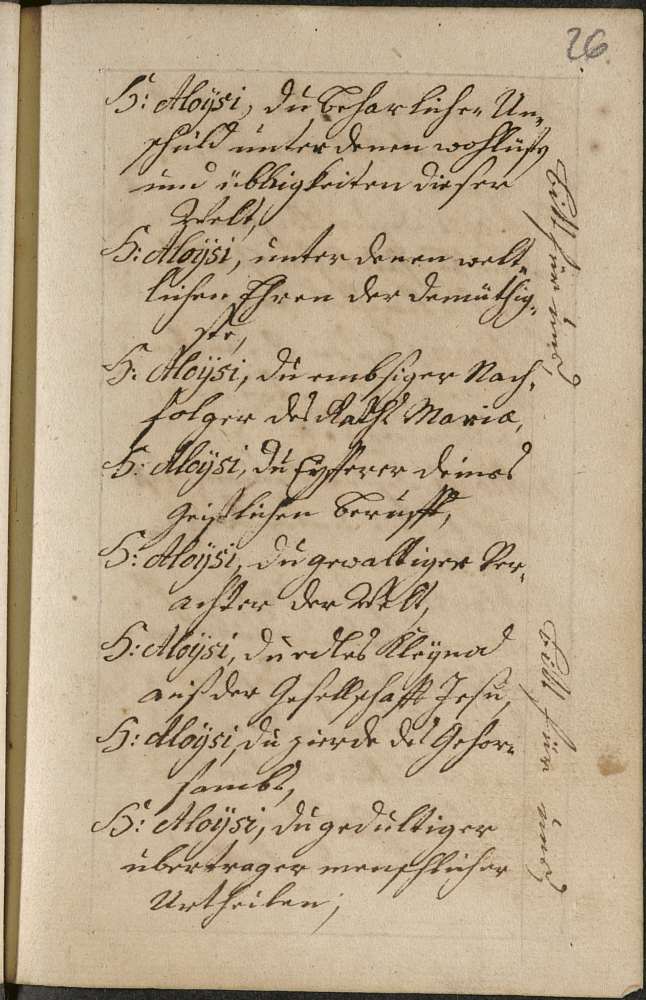 26.
H: Aloÿsi, du beharlicher Un„
schuld unter denen wohllüst
und übbrigkeiten dieser
Welt,
H: Aloÿsi, unter denen welt„
lichen Ehren der demüthig„
ste,
H: Aloÿsi, du embsiger Nach„
folger des Raths Mariæ,
H: Aloÿsi, du Eyfferer deines
Geistlichen beruffs,
H: Aloÿsi, du gewaltiger Ver„
achter der Welt,
H: Aloÿsi, du edles Kleÿnod
auß der Gesellschafft Jesu,
H: Aloÿsi, du zierde des Gehor„
sambs,
H: Aloÿsi, du gedultiger
übertrager menschlicher
Urtheilen;
bitt für uns
bitt für uns